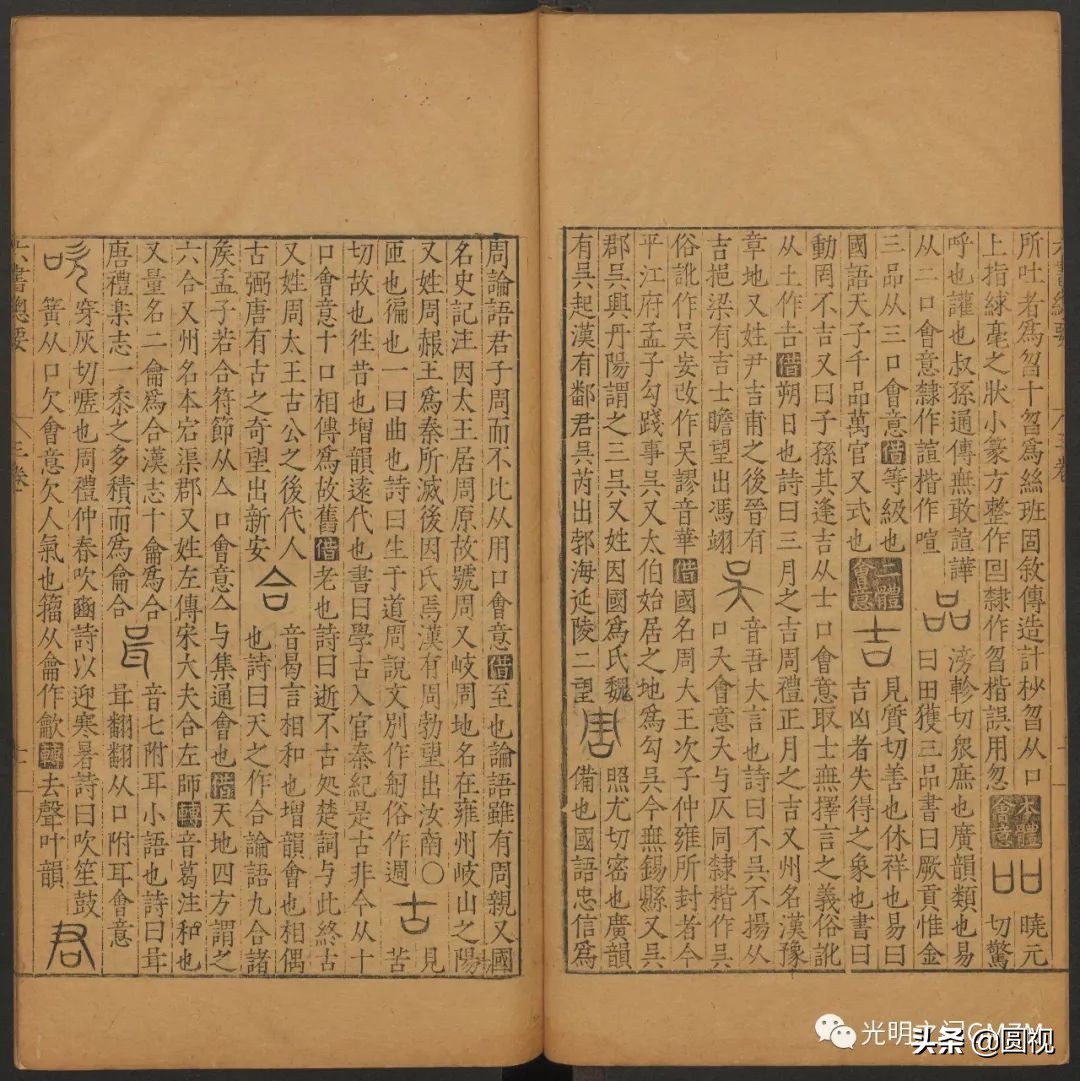 所吐者爲曶十曶爲絲班固敘傳造計秒曶从口
上指綠毫之狀小篆方整作回隸作曶楷誤用忽 本體會意 吅 曉元切驚
呼也讙也叔孫通傳無敢諠譁 滂軫切衆庶也廣韻類也易
从二口會意隸作諠楷作喧 品 曰田獲三品書曰厥貢惟金
三品从三口會意借等級也
國語天子千品萬官又式也 三體會意 吉 見質切善也休祥也易曰
吉凶者失得之象也書曰
動罔不吉又曰子孫其逢吉从士口會意取士無擇言之義俗訛
从土作吉借朔日也詩曰三月之吉周禮正月之吉又州名漢豫
章地又姓尹吉甫之後晉有
吉挹梁有吉士瞻望出馮翊 吳 音吾大言也詩曰不吳不揚从
口夨會意夨與仄同隸楷作吳
俗訛作吴妄改作吳謬音華借國名周大王次子仲雍所封者今
平江府孟子勾踐事吳又太伯始居之地爲勾吳今無錫縣又吳
郡吳興丹陽謂之三吳又姓因國爲氏魏
有吳起漢有鄱君吳芮出郭海延陵二望 周 照尤切密也廣韻
備也國語忠信爲
周論語君子周而不比从用口會意借至也論語雖有周親又國
名史記注因太王居周原故號周又岐周地名在雍州岐山之陽
又姓周赧王爲秦所滅後因氏焉漢有周勃望出汝南〇
匝也徧也一曰曲也詩曰生于道周說文別作匊俗作週 古 見
苦
切故也徃昔也增韻遠代也書曰學古入官秦紀是古非今从十
口會意十口相傳爲故舊借老也詩曰逝不古処楚詞与此終古
又姓周太王古公之後代人
古弼唐有古之奇望出新安 合 音曷言相和也增韻會也相偶
也詩曰天之作合論語九合諸
矦孟子若合符節从亼口會意亼与集通會也借天地四方謂之
六合又州名本宕渠郡又姓左傳宋大夫合左師轉音葛注和也
又量名二龠爲合漢志十龠爲合
唐禮樂志一黍之多積而爲龠合 咠 音七附耳小語也詩曰咠
咠翻翻从口附耳會意
吹 穿灰切噓也周禮仲春吹豳詩以迎寒暑詩曰吹笙鼓
簧从口欠會意欠人氣也籀从龠作龡轉去聲叶韻 君
六書總要 三卷 十一
光明之记GMZM
头条 @圆视